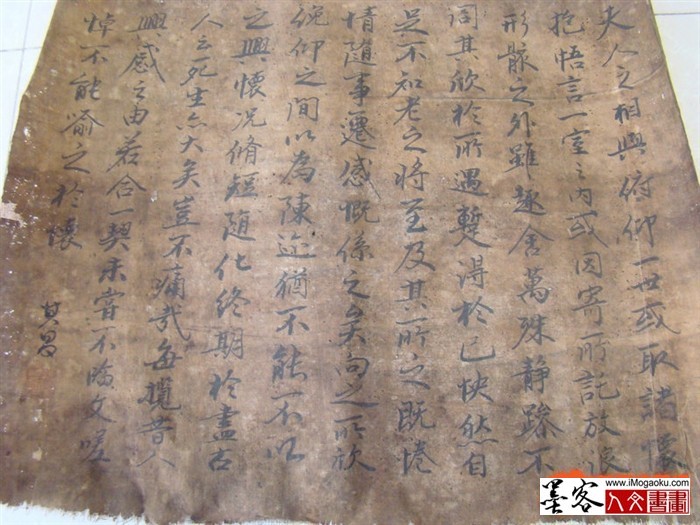 夫人之相與俯仰一世或取諸懷
抱悟言一室之內或因寄所託放浪
形骸之外雖趣舍萬殊静躁不
同其欣於所遇蹔得於己怏然自
足不知老之將至及其所之既惓
情隨事遷感慨係之矣向之所欣
俛仰之間以為陳迹猶不能不以
之興懷况脩短隨化終期於盡古
人云死生亦大矣豈不痛哉每攬昔人
興感之由若合一契未嘗不臨文嗟
悼不能喻之於懷
其昌
墨客
人文書畫
www.iMogaoku.com